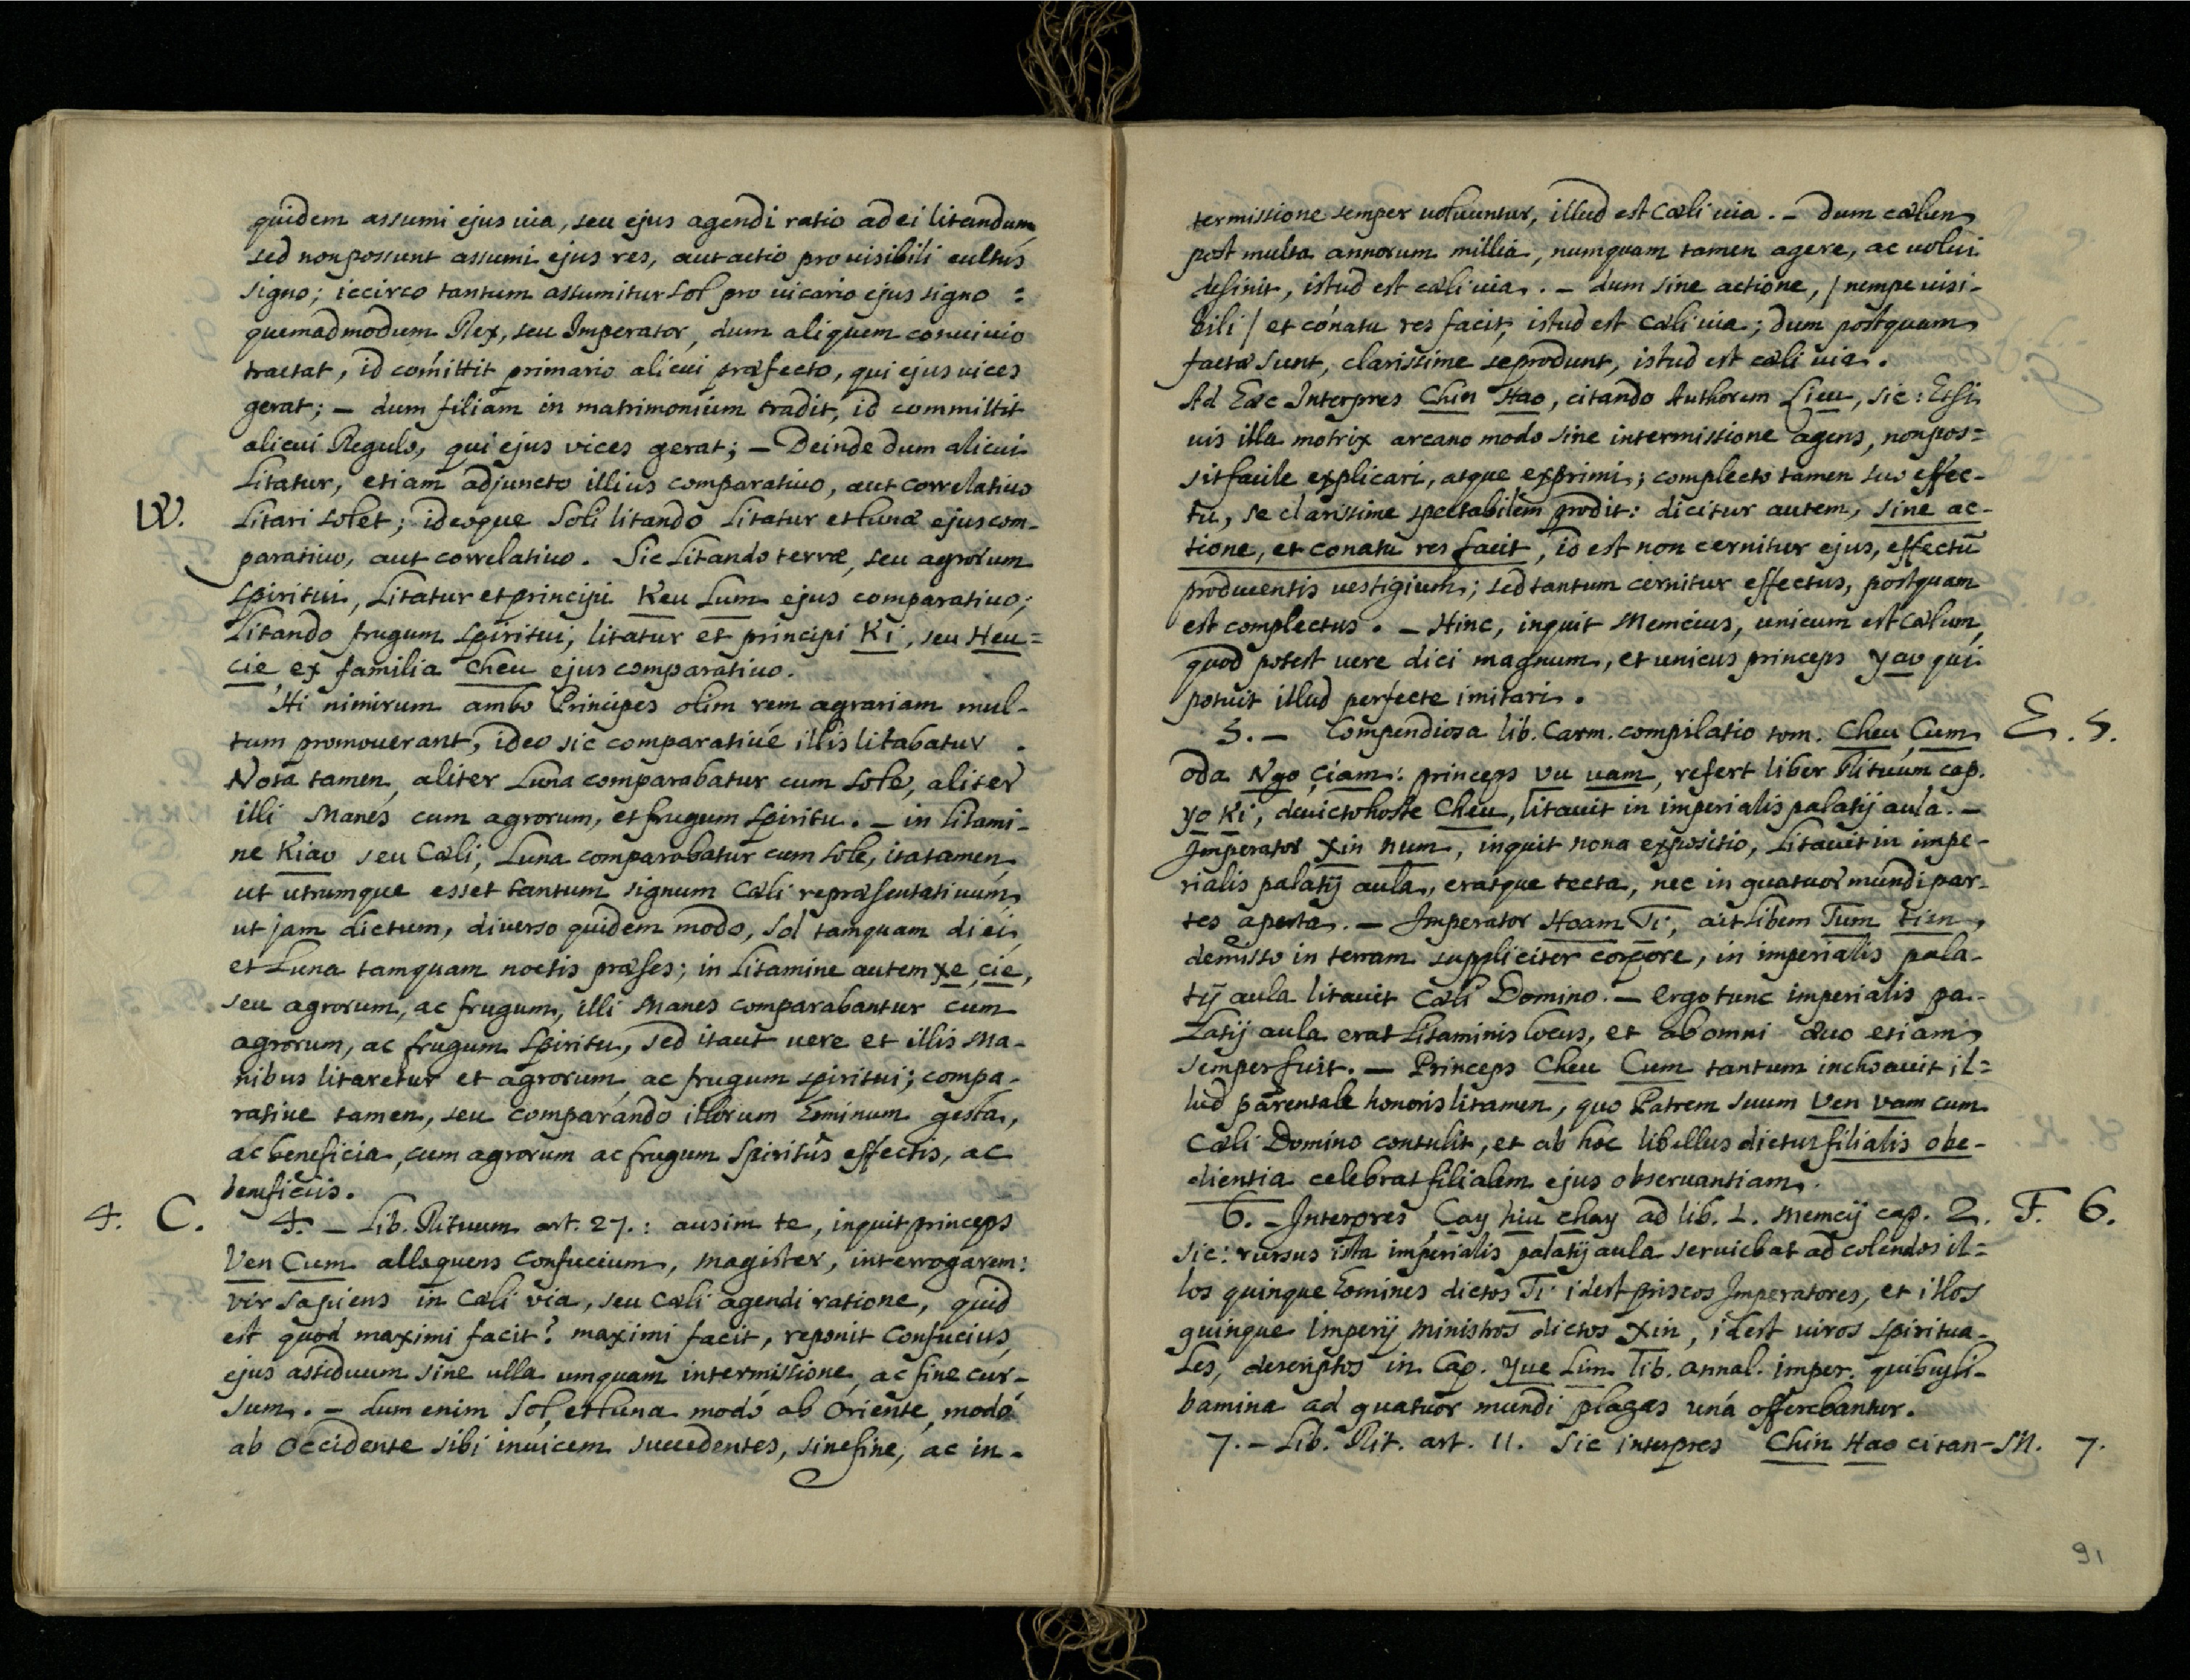 quidem assumi ejus via, seu ejus agendi ratio ad ei litandum
sed non possunt assumi ejus res, aut actio pro visibili cultus
signo; iccirco tantum assumitur Sol pro vicario ejus signo :
quemadmodum Rex, seu Imperator, dum aliquem convivio
tractat, id comittit primario alicui præfecto, qui ejus vices
gerat; – dum filiam in matrimonium tradit, id committit
alicui Regulo, qui ejus vices gerat; – Deinde dum alicui
Litatur, etiam adjuncto illius comparativo, aut correlativo
W. Litari solet; ideoque Soli litando Litatur et Lunæ ejus com-
parativo, aut correlativo. Sic Litando terræ, seu agrorum
Spiritui, Litatur et principi Keu Lum ejus comparativo;
Litando frugum Spiritui, litatur et principi Ki, seu Heu=
cie, ex familia Cheu ejus comparativo.
Hi nimirum ambo Principes olim rem agrariam mul-
tum promoverant, ideo sic comparativé illis litabatur.
Nota tamen, aliter Luna comparabatur cum Sole, aliter
illi Manes cum agrorum, et frugum Spiritu. – in litami-
ne Kiao seu Cæli, Luna comparabatur cum sole, ita tamen
ut utrumque esset tantum signum Cæli repræsentativum,
ut jam dictum, diverso quidem modo, Sol tamquam diei,
et Luna tamquam noctis præses; in Litamine autem xe cie,
seu agrorum, ac frugum, illi Manes comparabantur cum
agrorum, ac frugum Spiritu, sed ita ut vere et illis Ma-
nibus litaretur et agrorum, ac frugum spiritui; compa-
rative tamen, seu comparando illorum hominum gesta,
ac beneficia, cum agrorum ac frugum Spiritûs effectis, ac
beneficiis.
4. C. 4. – Lib. Rituum art. 27. : ausim te, inquit princeps
Ven Cum alloquens Confucium, magister, interrogarem:
vir sapiens in Cæli via, seu Cæli agendi ratione, quid
est quod maximi facit? maximi facit, reponit Confucius,
ejus assiduum sine ulla umquam intermissione, ac fine cur-
sum. – dum enim Sol, et Luna modó ab Oriente, modó
ab Occidente sibi invicem succedentes, sine fine, ac in-
termissione semper volvuntur, illud est Cæli via. – Dum cælum
post multa annorum millia, numquam tamen agere, ac volvi
desinit, istud est cæli via. – dum sine actione, / nempe visi-
bili / et conatu res facit, istud est Cæli via; dum postquam
facta sunt, clarissime se produnt, istud est cæli via.
Ad hæc Interpres Chin Hao, citando Authorem Lieu, sic: Etsi
vis illa motrix arcano modo sine intermissione agens, non pos=
sit facile explicari, atque exprimi; complecto tamen suo effec-
tu, se clarissime spectabilem prodit: dicitur autem, sine ac-
tione, et conatu res facit, id est non cernitur ejus, effectũ
producentis vestigium; sed tantum cernitur effectus, postquam
est complectus. – Hinc, inquit Memcius, unicum est Cælum,
quod potest vere dici magnum, et unicus princeps yao qui
potuit illud perfecte imitari.
5. – Compendiosa lib. Carm. compilatio tom. Cheu Cum E. 5.
oda Ngo ciam: princeps Vu vam, refert liber Rituum cap.
yo Ki, devicto hoste Cheu, litavit in imperialis palatij aula. –
Imperator Xin num, inquit nona expositio, Litavit in impe-
rialis palatij aula, eratque tecta, nec in quatuor mundi par-
tes aperta. – Imperator Hoam Ti, ait libem Tum tien,
demisso in terram suppliciter corpore, in imperialis pala-
tij aula litavit Cæli Domino. – ergo tunc imperialis pa-
Latij aula erat Litaminis locus, et ab omni ævo etiam
semper fuit. – Princeps Cheu Cum tantum inchoavit il=
lud parentale honoris litamen, quo Patrem suum Ven vam cum
Cæli Domino contulit, et ab hoc libellus dictus filialis obe-
dientia celebrat filialem ejus observantiam.
6. – Interpres Cay hiu chay ad lib. 1. Memcij cap. 2. F. 6.
sic: rursus ista imperialis palatij aula serviebat ad colendos il=
los quinque homines dictos Ti idest priscos Imperatores, et illos
quinque Imperij ministros dictos Xin, idest viros spiritua-
les, descriptos in Cap. Yue Lim lib. annal. imper. quibus li-
bamina ad quatuor mundi plagas uná offerebantur.
7. – Lib. Rit. art. 11. Sic interpres Chin Hao citan- M. 7.
91